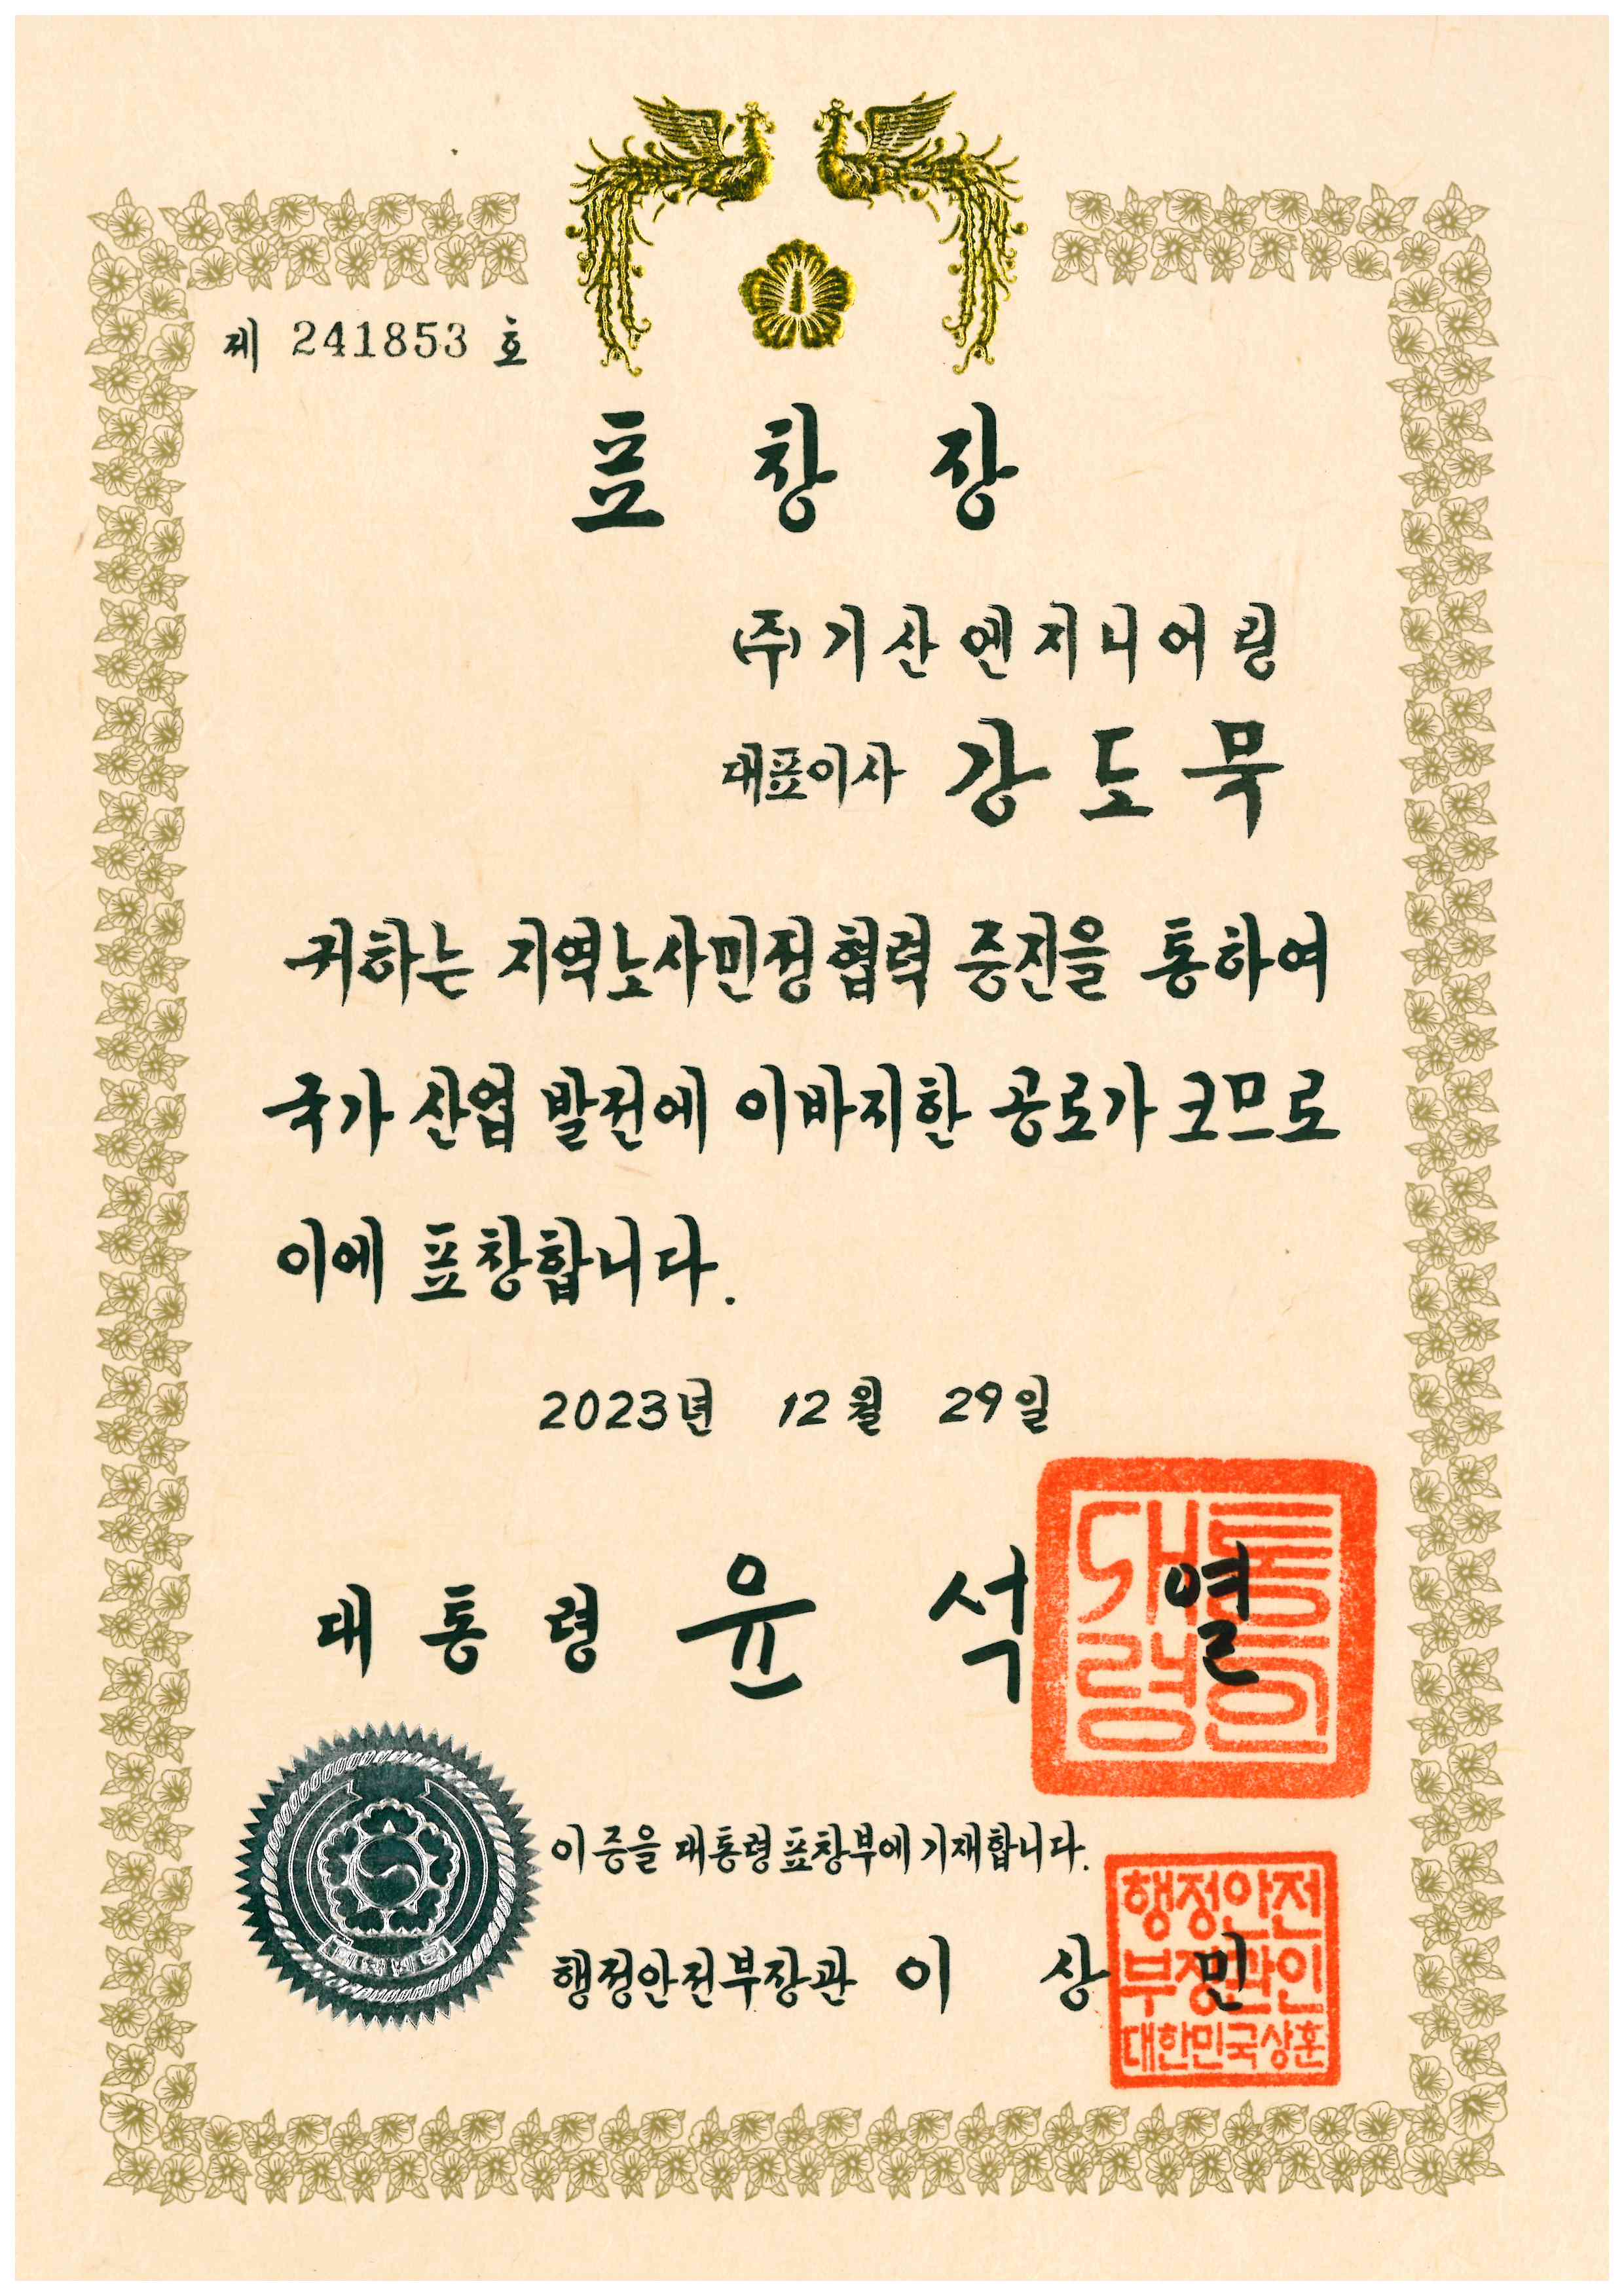 제 241853 호
표창장
(주)기산엔지니어링
대표이사 강도묵
귀하는 지역노사민정협력 증진을 통하여
국가 산업 발전에 이바지한 공로가 크므로
이에 표창합니다.
2023년 12월 29일
대통령 윤석열
대통령인
이 증을 대통령표창부에 기재합니다.
행정안전부장관 이상민
행정안전
부장관인
대한민국상훈